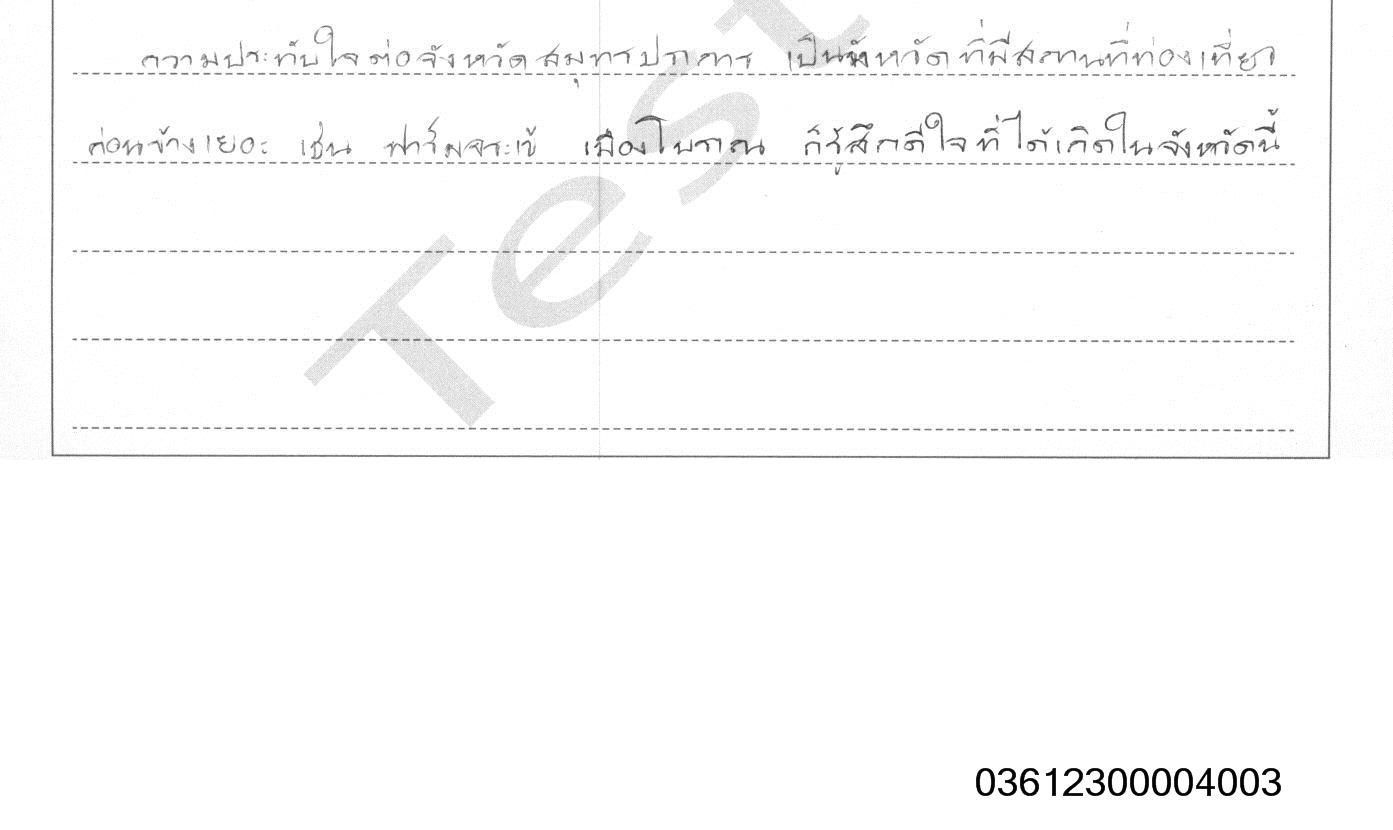 ความประทับใจต่อจังหวัดสมุทรปราการ เป็นจังหวัดที่มีสถานที่ท่องเที่ยว
ค่อนข้างเยอะ เช่น ฟาร์มจระเข้ เมืองโบราณ ก็รู้สึกดีใจที่ได้เกิดในจังหวัดนี้
Test
03612300004003